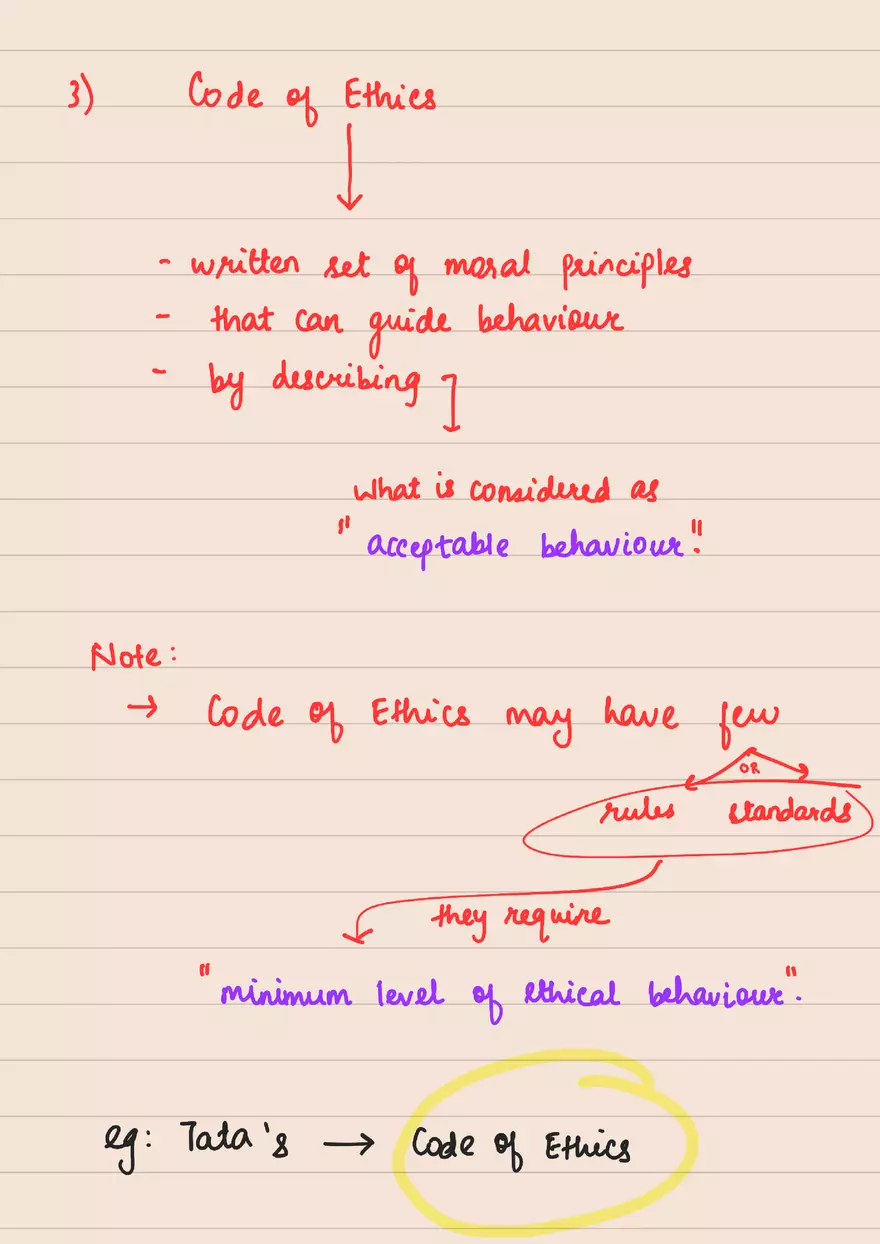 3) Code of Ethics
- written set of moral principles
- that can guide behaviour
- by describing
what is considered as
"acceptable behaviour".
Note:
→ Code of Ethics may have few
OR
rules standards
they require
"minimum level of ethical behaviour".
eg: Tata's → Code of Ethics